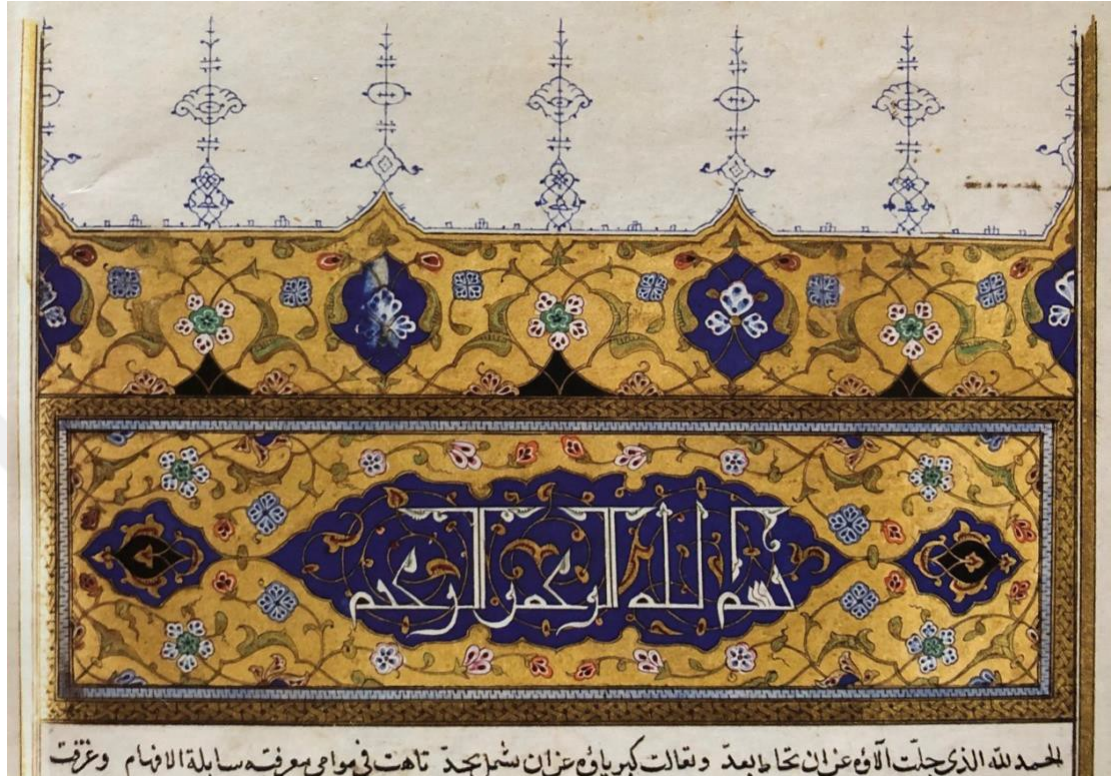 بسم الله الرحمن الرحيم
الحمد لله الذي جلّت آلاؤه عن ان تحاط بعدّ وتعالت كبرياؤه عن ان تشمل بحدّ تاهت في موامي معرفته سابلة الافهام وغرقت